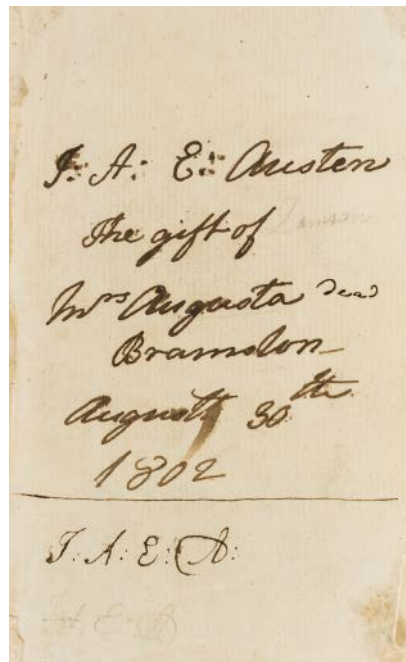 J: A: E: Austen
The gift of
Mrs Augusta dead
Bramston
August 30th
1802
J: A: E: A: